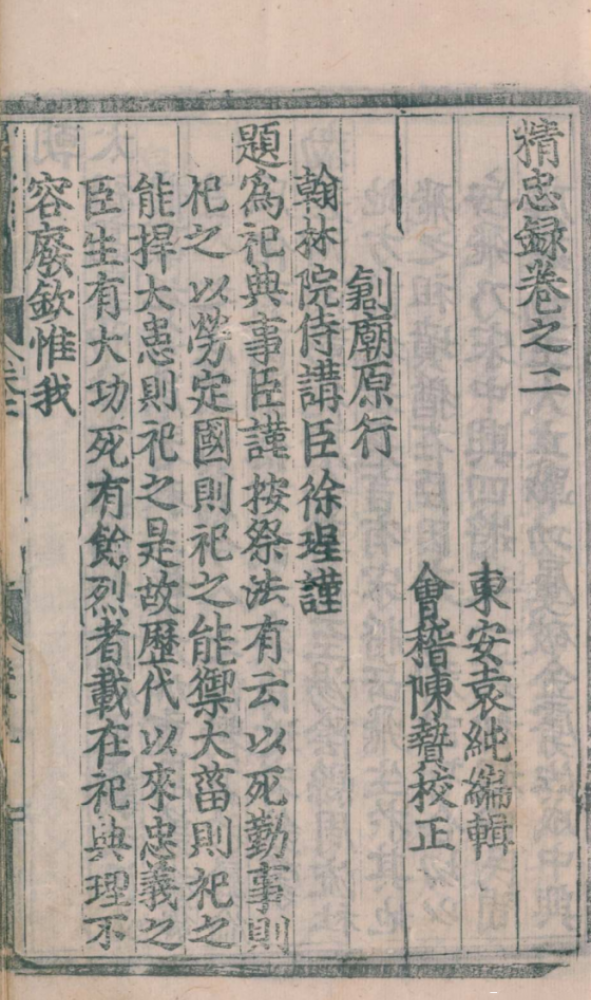 精忠録卷之二
東安袁純編輯
會稽陳贄校正
創廟原行
翰林院侍講臣徐珵謹
題爲祀典事臣謹按祭法有云以死勤事則
祀之以勞定國則祀之能禦大菑則祀之
能捍大患則祀之是故歷代以來忠義之
臣生有大功死有餘烈者載在祀典理不
容廢欽惟我